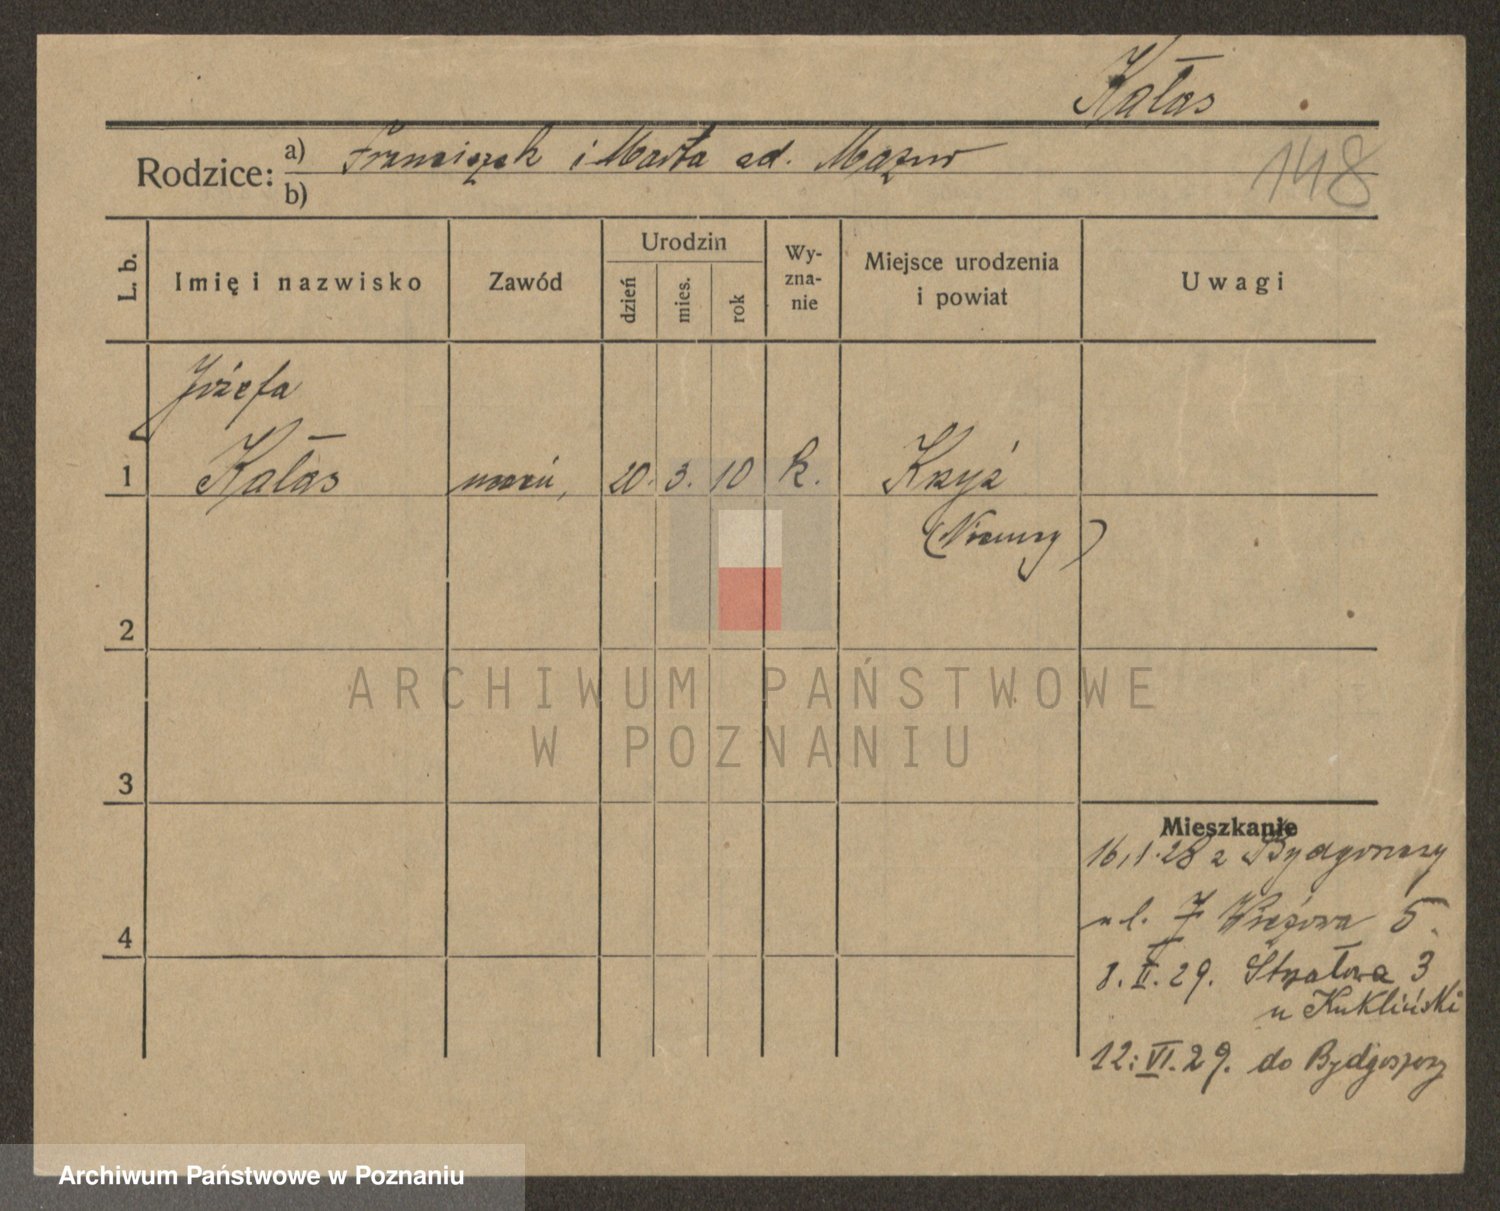 Kałas
Rodzice: a) Franciszek i Marta od. Mazur
b)
148
L. b.
Imię i nazwisko
Zawód
Urodzin
dzień
mies.
rok
Wy-
zna-
nie
Miejsce urodzenia
i powiat
Uwagi
Józefa
1 Kałas 20. 3. 10 k. Krzyż
(Niemcy)
2
3
4
ARCHIWUM PAŃSTWOWE
W POZNANIU
Mieszkanie
16.1.28 z Bydgoszczy
ul. Wiązowa 5
8.II.29. Strzałowa 3
u Kukliński
12.VI.29. do Bydgoszczy
Archiwum Państwowe w Poznaniu